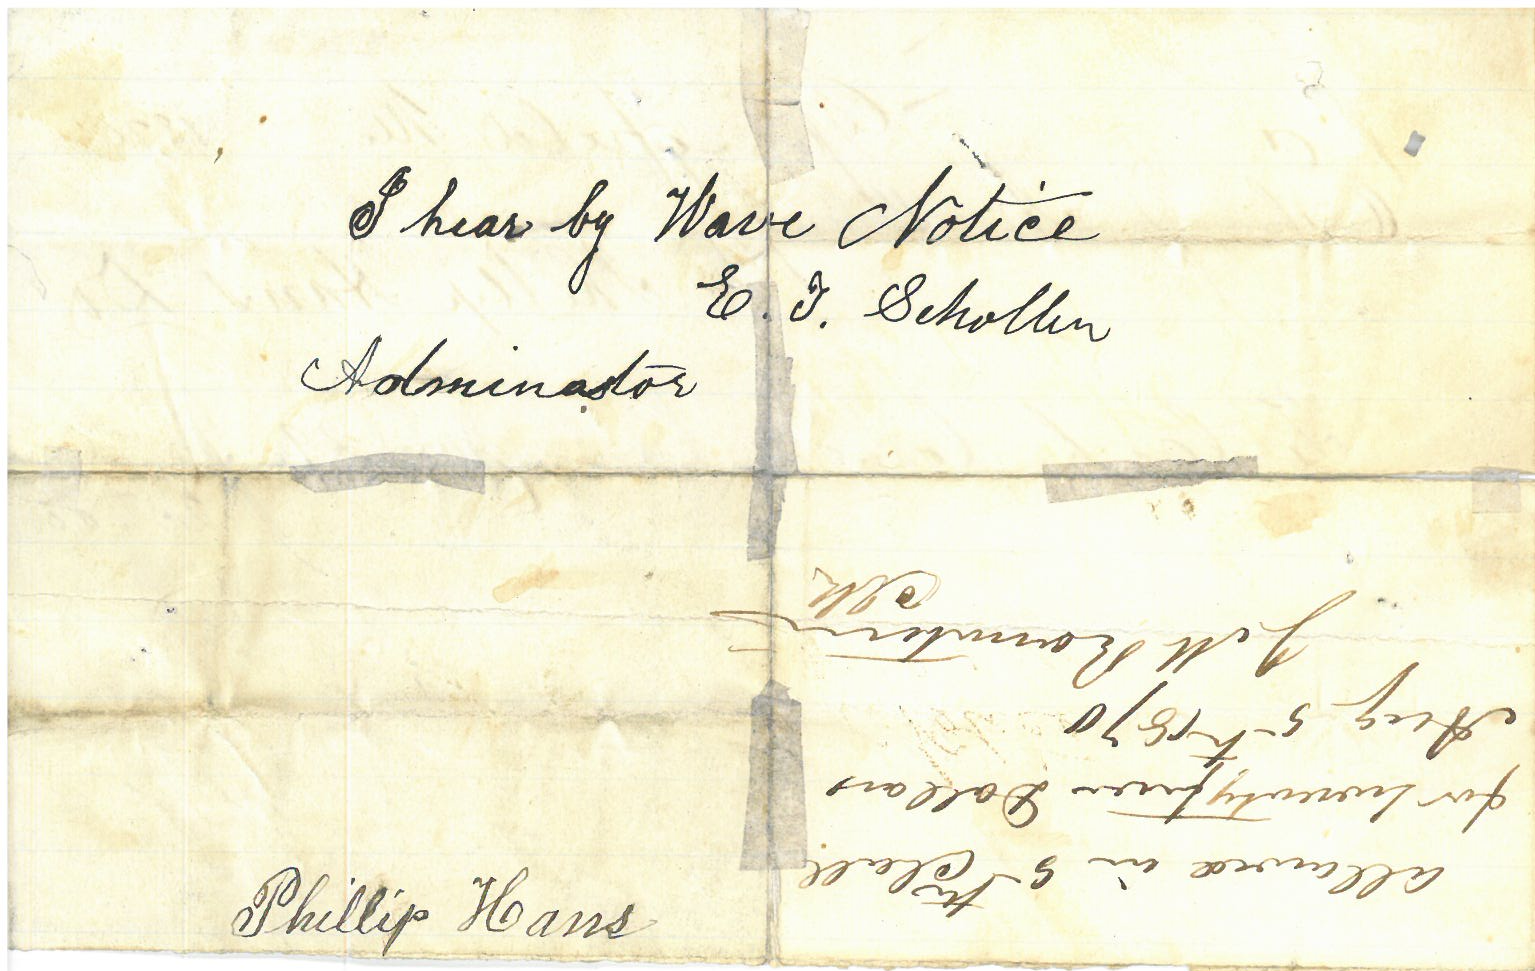 I hear by Wave Notice
E. T. Schollen
Adminastor
Phillip Hans
allowed in 5th Class
for twenty Dollars
Aug 5th 1870
J M
Clk